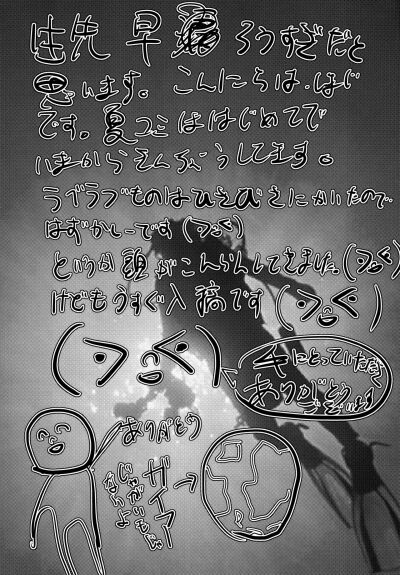 性先 早 ろうすぎだと
思います。こんにちは、はじ
です。夏コミははじめてで
いまからきんちょうしてます。
ラブラブものはひさびさにかいたので…
はずかしーです（つう<）
というか頭がこんらんしてきました。（つう<）
けどもうすぐ入稿です（つう<）
（つう<）
手にとっていただき
ありがとう
ございます
ありがとう
ガイアー→
じゃがいもじゃ
ないよ